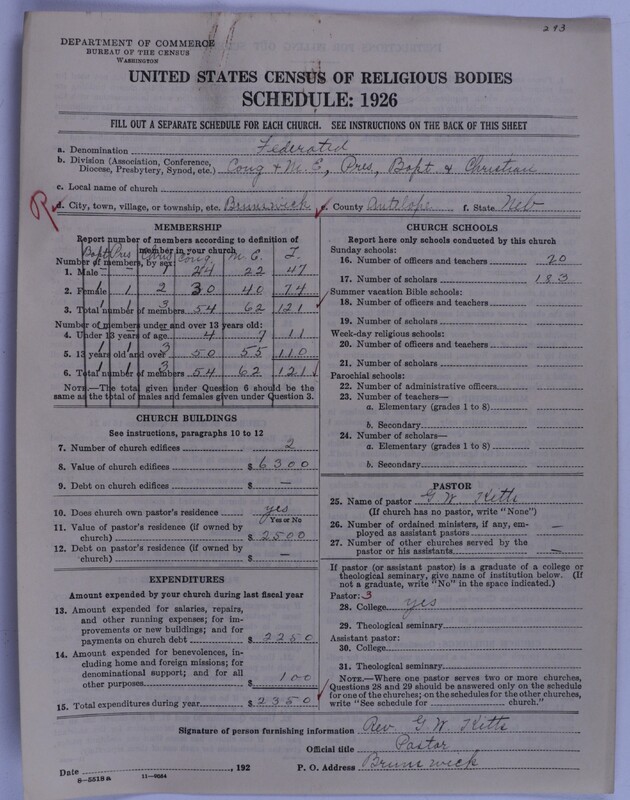 293
DEPARTMENT OF COMMERCE
BUREAU OF THE CENSUS
WASHINGTON
UNITED STATES CENSUS OF RELIGIOUS BODIES
SCHEDULE: 1926
FILL OUT A SEPARATE SCHEDULE FOR EACH CHURCH. SEE INSTRUCTIONS ON THE BACK OF THIS SHEET
a. Denomination Federated
b. Division (Association, Conference, Diocese, Presbytery, Synod, etc.) Cong + M. E., Pres, Bapt. & Christian
c. Local name of church
d. City, town, village, or township, etc. Brunswick e. County Antelope f. State Neb
MEMBERSHIP
Report number of members according to definition of member in your church
Bapt Pres Chris Cong M. E. T.
Number of members, by sex:
1. Male – – 1 24 22 47
2. Female 1 1 2 30 40 74
3. Total number of members 1 1 3 54 62 121
Number of members under and over 13 years old:
4. Under 13 years of age 4 7 11
5. 13 years old and over 1 1 3 50 55 110
6. Total number of members 1 1 3 54 62 121
NOTE.—The total given under Question 6 should be the same as the total of males and females given under Question 3.
CHURCH BUILDINGS
See instructions, paragraphs 10 to 12
7. Number of church edifices 2
8. Value of church edifices $ 6300
9. Debt on church edifices $ —
10. Does church own pastor's residence yes
Yes or No
11. Value of pastor's residence (if owned by church) $ 2500
12. Debt on pastor's residence (if owned by church) $ —
EXPENDITURES
Amount expended by your church during last fiscal year
13. Amount expended for salaries, repairs, and other running expense; for improvements or new buildings; and for payments on church debt $ 2250
14. Amount expended for benevolences, including home and foreign missions; for denominational support; and for all other purposes $ 100
15. Total expenditures during year $ 2350
CHURCH SCHOOLS
Report here only schools conducted by this church
Sunday schools:
16. Number of officers and teachers 20
17. Number of scholars 183
Summer vacation Bible schools:
18. Number of officers and teachers
19. Number of scholars
Week-day religious schools:
20. Number of officers and teachers
21. Number of scholars
Parochial schools:
22. Number of administrative officers
23. Number of teachers—
a. Elementary (grades 1 to 8)
b. Secondary
24. Number of scholars—
a. Elementary (grades 1 to 8)
b. Secondary
PASTOR
25. Name of pastor G. W. Kitts
(If church has no pastor, write "None")
26. Number of ordained ministers, if any, employed as assistant pastors —
27. Number of other churches served by the pastor or his assistants —
If pastor (or assistant pastor) is a graduate of a college or theological seminary, give name of institution below. (If not a graduate, write "No" in the space indicated.)
Pastor: 3
28. College yes
29. Theological seminary
Assistant pastor:
30. College
31. Theological seminary
NOTE.—Where one pastor serves two or more churches, Questions 28 and 29 should be answered only on the schedule for one of the churches; on the schedules for the other churches, write "See schedule for church."
Signature of person furnishing information Rev. G. W. Kitts
Official title Pastor
Date , 192 P. O. Address Brunswick
8—5518a 11—9264